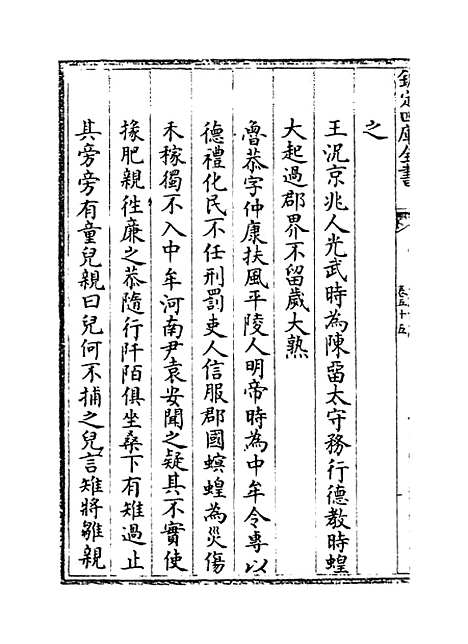 欽定四庫全書
之
王況京兆人光武時為陳留太守務行德教時蝗
大起過郡界不留歲大熟
魯恭字仲康扶風平陵人明帝時為中牟令專以
德禮化民不任刑罰吏人信服郡國螟蝗為災傷
禾稼獨不入中牟河南尹袁安聞之疑其不實使
掾肥親徃廉之恭隨行阡陌俱坐桑下有雉過止
其旁旁有童兒親曰兒何不捕之兒言雉將雛親